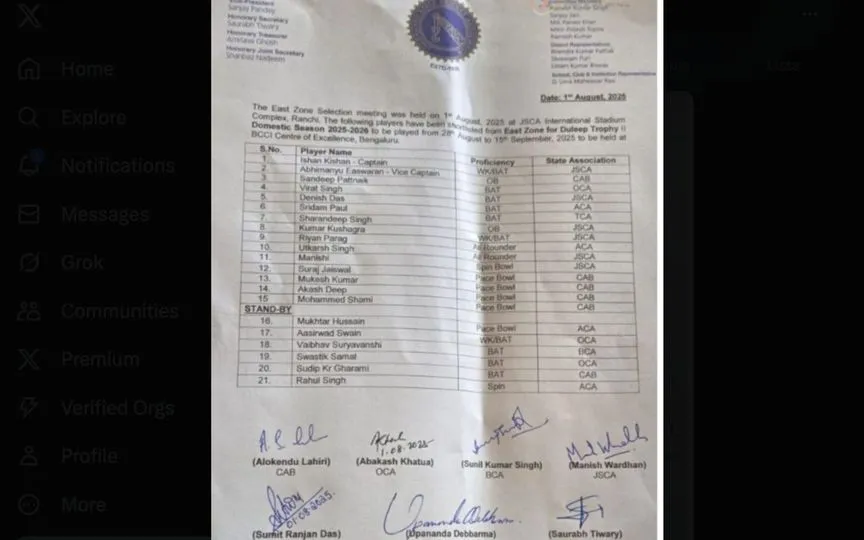 Home
Explore
Notifications
Messages
Grok
Communities
Premium
Verified Orgs
Profile
More
Lists
Vice-President
Sanjay Pandey
Honorary Secretary
Saurabh Tiwary
Honorary Treasurer
Amitava Ghosh
Honorary Joint Secretary
Shahbaz Nadeem
Date: 1st August, 2025
The East Zone Selection meeting was held on 1st August, 2025 at JSCA International Stadium
Complex, Ranchi. The following players have been shortlisted from East Zone for Duleep Trophy
Domestic Season 2025-2026 to be played from 28th August to 15th September, 2025 to be held at
BCCI Centre of Excellence, Bengaluru.
S.No. Player Name Proficiency State Association
1. Ishan Kishan - Captain WK/BAT JSCA
2. Abhimanyu Easwaran - Vice Captain OB CAB
3 Sandeep Pattnaik BAT OCA
4. Virat Singh BAT JSCA
5. Denish Das BAT ACA
6 Sridam Paul BAT TCA
7. Sharandeep Singh OB JSCA
8. Kumar Kushagra WK/BAT JSCA
9. Riyan Parag All Rounder ACA
10. Utkarsh Singh All Rounder JSCA
11. Manishi Spin Bowl JSCA
12. Suraj Jaiswal Pace Bowl CAB
13. Mukesh Kumar Pace Bowl CAB
14. Akash Deep Pace Bowl CAB
15 Mohammed Shami Pace Bowl CAB
STAND-BY
16. Mukhtar Hussain Pace Bowl ACA
17. Aasirwad Swain WK/BAT OCA
18. Vaibhav Suryavanshi BAT BCA
19. Swastik Samal BAT OCA
20. Sudip Kr Gharami BAT CAB
21. Rahul Singh Spin ACA
1.08.2025
(Alokendu Lahiri) (Abakash Khatua) (Sunil Kumar Singh) (Manish Wardhan)
CAB OCA BCA JSCA
01.08.2025.
Upananda Debbarma
(Sumit Ranjan Das) (Upananda Debbarma) (Saurabh Tiwary)